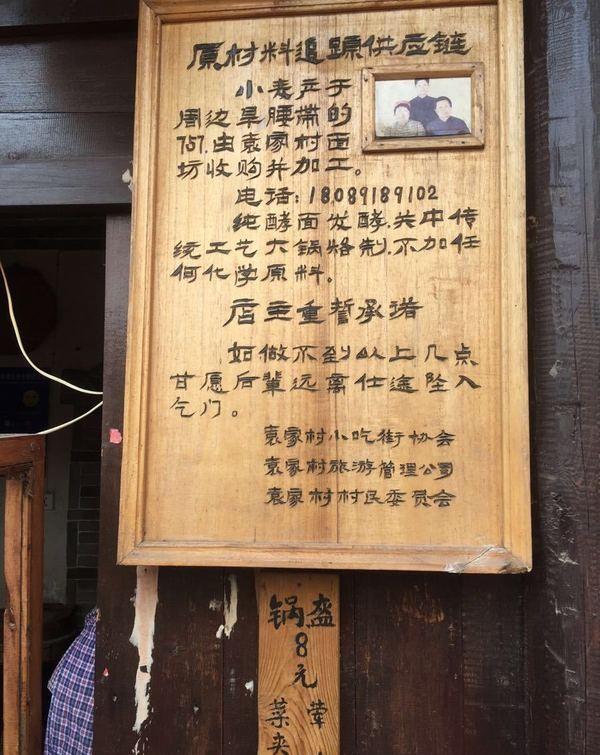 原材料追踪供应链
小麦产于
周边旱腰带的
757.由袁家村面
坊收购并加工。
电话:18089189102
纯酵面发酵.关中传
统工艺大锅烙制.不加任
何化学原料。
店主重誓承诺
如做不到以上几点
甘愿后辈远离仕途坠入
乞门。
袁家村小吃街协会
袁家村旅游管理公司
袁家村村民委员会
锅盔
8
元
菜夹
荤